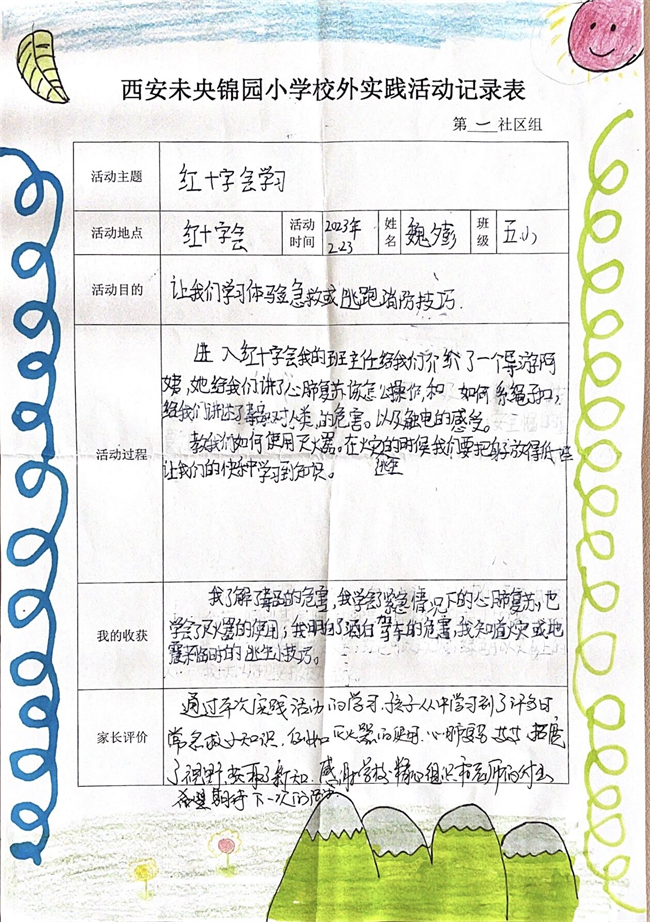 西安未央锦园小学校外实践活动记录表
第一社区组
活动主题 红十字会学习
活动地点 红十字会 活动时间 2023年2.23 姓名 魏 澎 班级 五
活动目的 让我们学习体验急救或逃跑消防技巧.
活动过程
进入红十字会我的班主任给我们介绍了一个导游阿
姨,她给我们讲了心肺复苏该怎么操作,和如何系绳子扣,
给我们讲述了毒品对人类的危害。以及触电的感受。
教我们如何使用灭火器。在火灾的时候我们要把身子放得低一些
让我们的快乐中学习到知识。
我的收获
我了解了毒品的危害,我学会了紧急情况下的心肺复苏,也
学会了灭火器的使用;我明白了酒驾车的危害,我知道火灾或地
震来临时的逃生小技巧。
家长评价
通过本次实践活动的学习,孩子从中学习到了许多日
常急救小知识,例如灭火器的使用、心肺复苏 拓宽
了视野 新知 感谢学校精心组织和老师的付出
希望期待下一次的活动